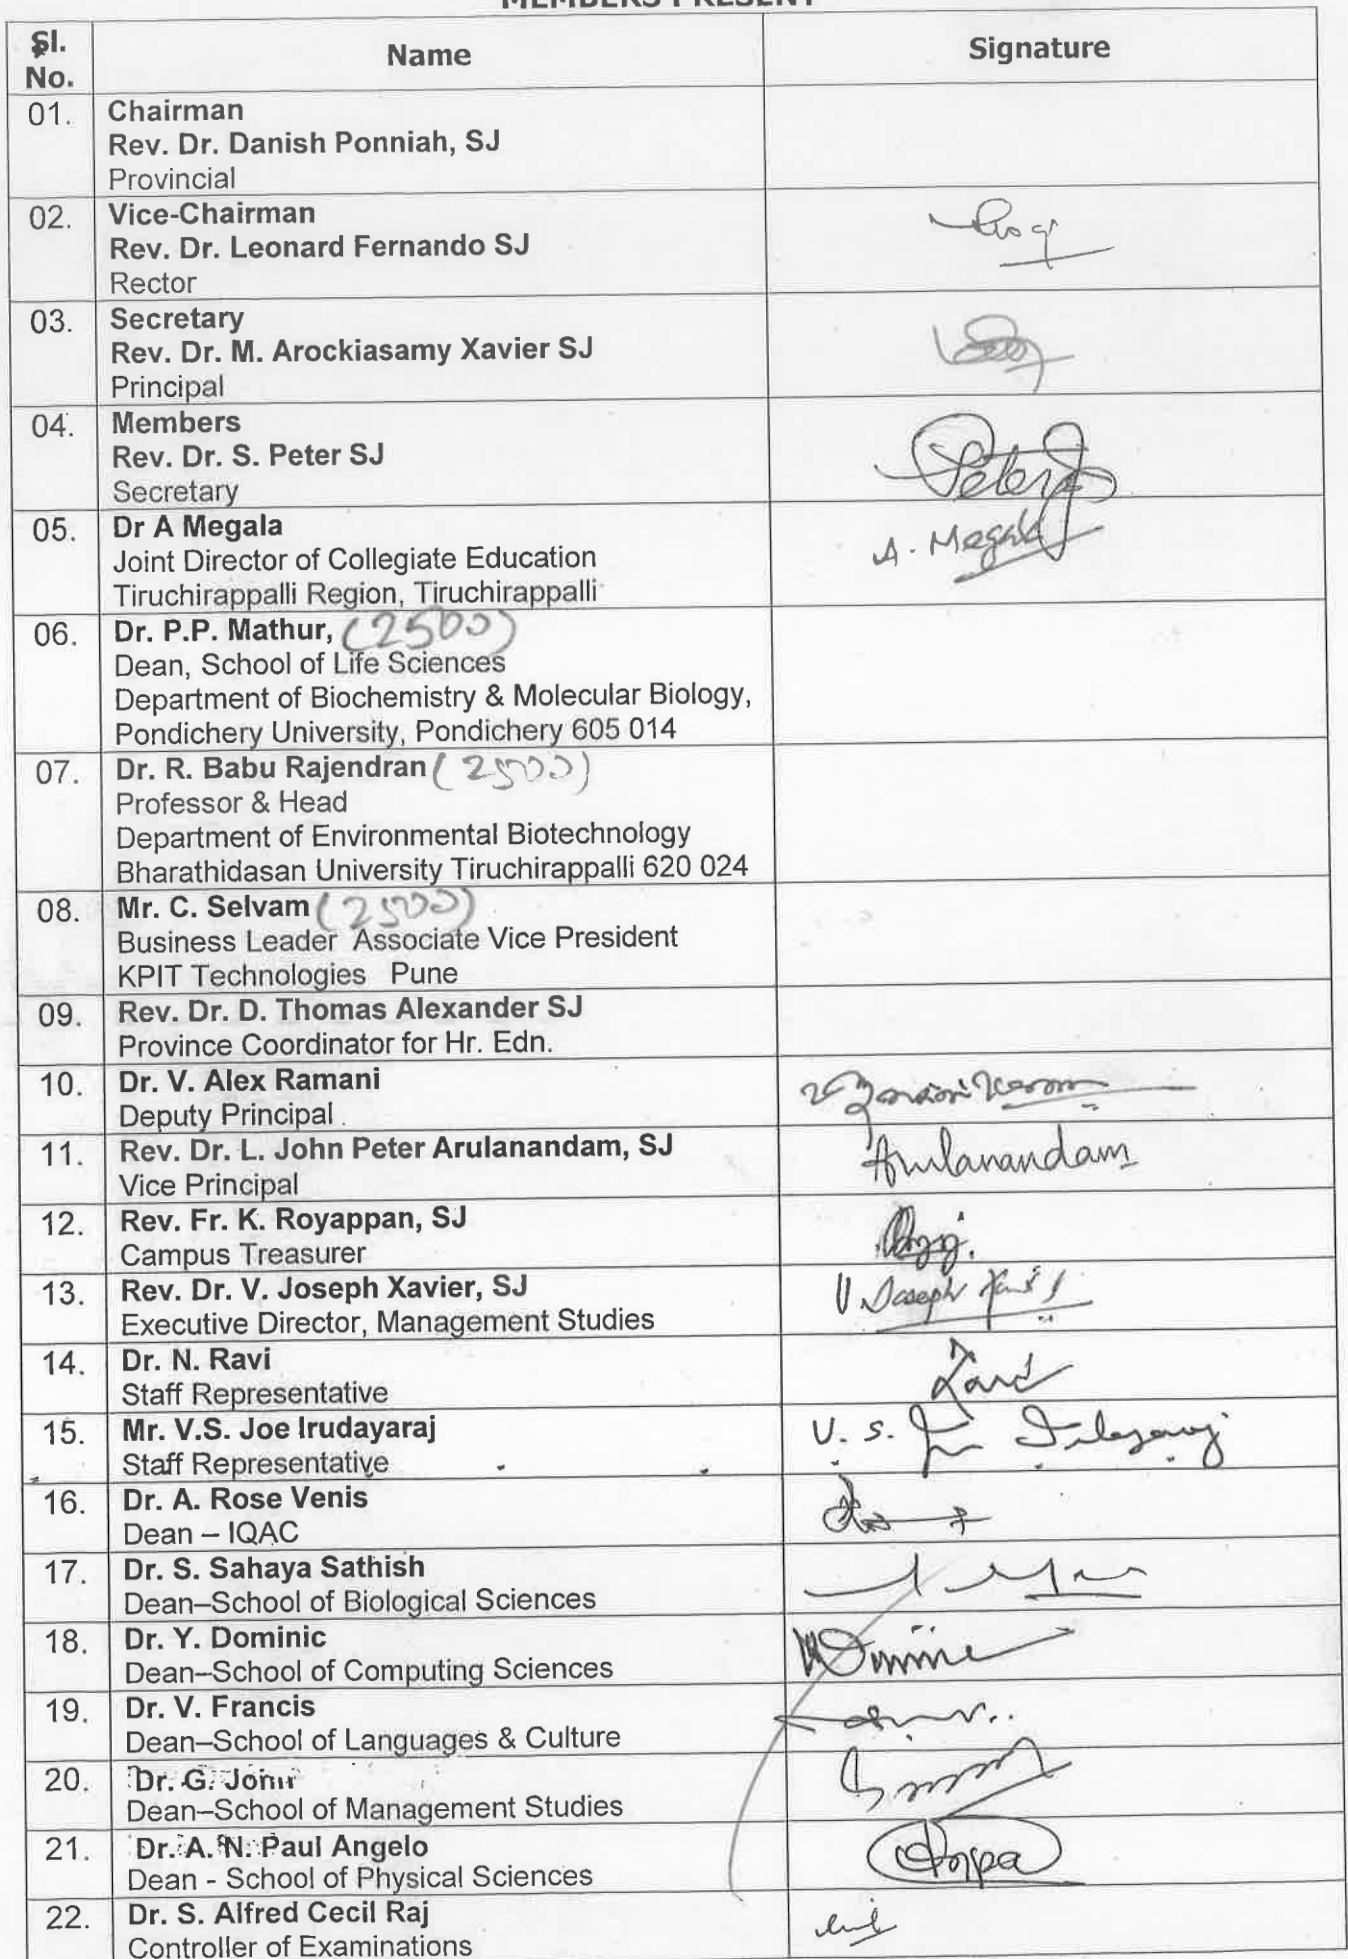 MEMBERS PRESENT
Sl. No.
Name
Signature
01.
Chairman
Rev. Dr. Danish Ponniah, SJ
Provincial
02.
Vice-Chairman
Rev. Dr. Leonard Fernando SJ
Rector
03.
Secretary
Rev. Dr. M. Arockiasamy Xavier SJ
Principal
04.
Members
Rev. Dr. S. Peter SJ
Secretary
Peter
05.
Dr A Megala
Joint Director of Collegiate Education
Tiruchirappalli Region, Tiruchirappalli
A. Megala
06.
Dr. P.P. Mathur, (2500)
Dean, School of Life Sciences
Department of Biochemistry & Molecular Biology,
Pondichery University, Pondichery 605 014
07.
Dr. R. Babu Rajendran (2500)
Professor & Head
Department of Environmental Biotechnology
Bharathidasan University Tiruchirappalli 620 024
08.
Mr. C. Selvam (2500)
Business Leader Associate Vice President
KPIT Technologies Pune
09.
Rev. Dr. D. Thomas Alexander SJ
Province Coordinator for Hr. Edn.
10.
Dr. V. Alex Ramani
Deputy Principal
11.
Rev. Dr. L. John Peter Arulanandam, SJ
Vice Principal
Arulanandam
12.
Rev. Fr. K. Royappan, SJ
Campus Treasurer
13.
Rev. Dr. V. Joseph Xavier, SJ
Executive Director, Management Studies
V. Joseph Xavier
14.
Dr. N. Ravi
Staff Representative
Ravi
15.
Mr. V.S. Joe Irudayaraj
Staff Representative
V. S. Joe Irudayaraj
16.
Dr. A. Rose Venis
Dean – IQAC
17.
Dr. S. Sahaya Sathish
Dean–School of Biological Sciences
18.
Dr. Y. Dominic
Dean–School of Computing Sciences
19.
Dr. V. Francis
Dean–School of Languages & Culture
20.
Dr. G. John
Dean–School of Management Studies
21.
Dr. A. N. Paul Angelo
Dean - School of Physical Sciences
22.
Dr. S. Alfred Cecil Raj
Controller of Examinations